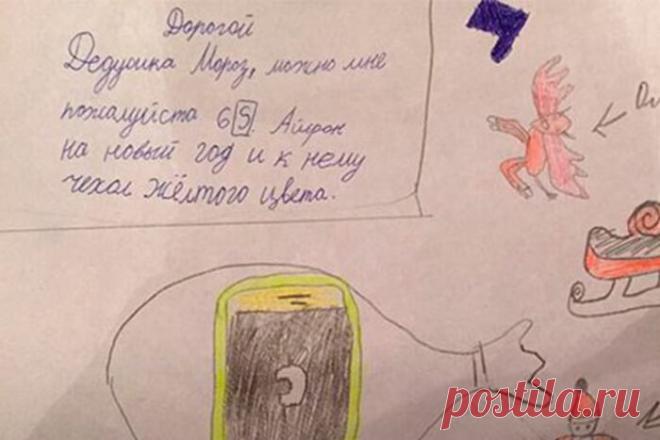 Дорогой
Дедушка Мороз, можно мне
пожалуйста 6S Айфон
на новый год и к нему
чехол жёлтого цвета.
postila.ru